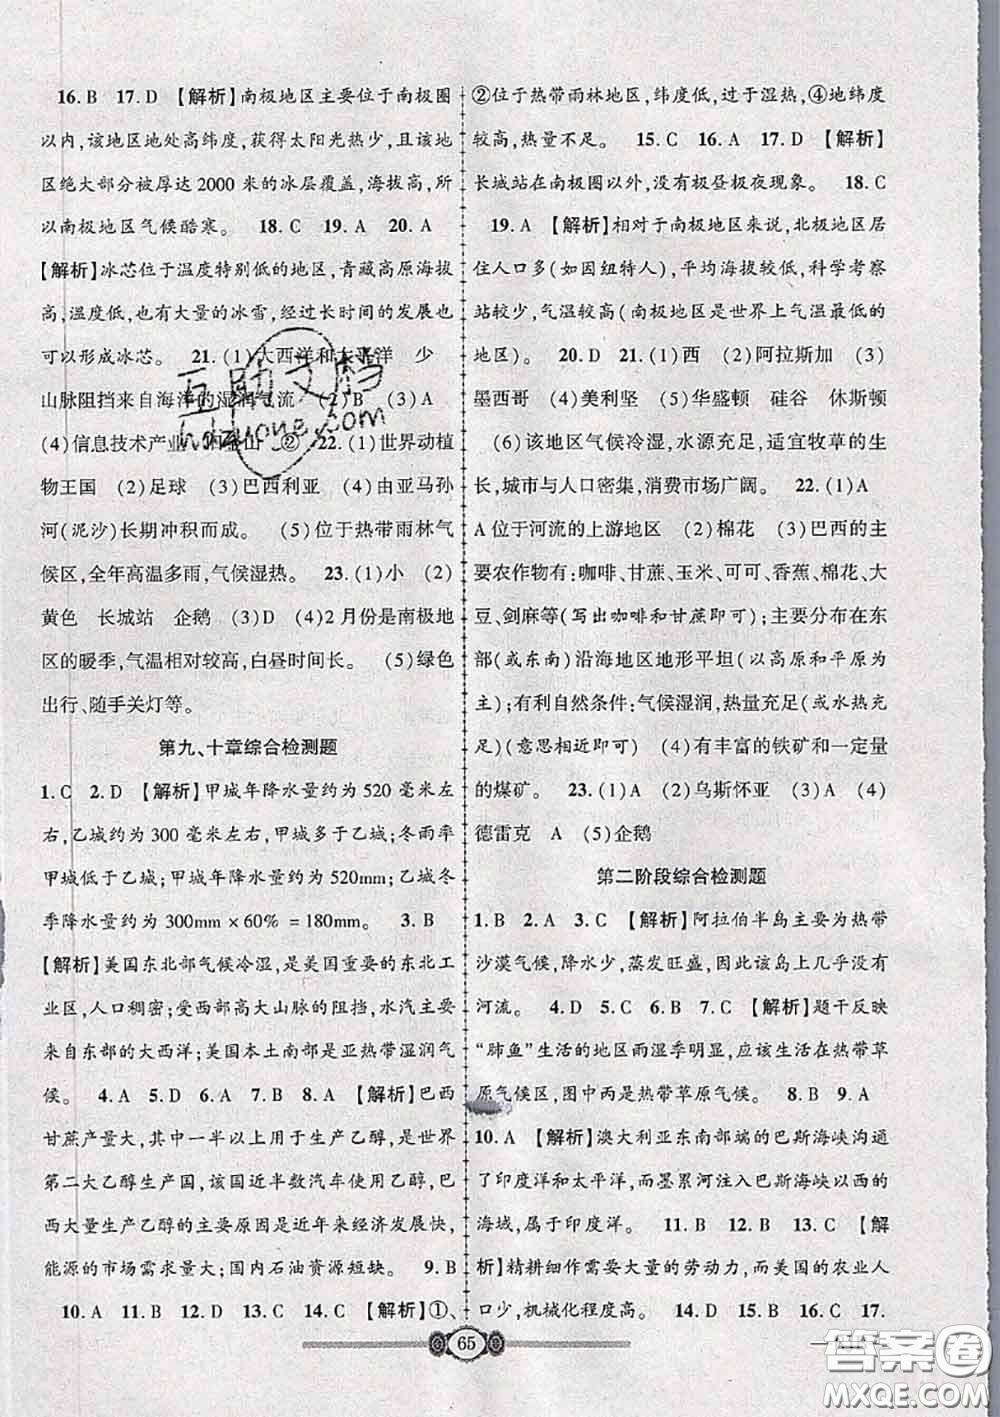 16. B　17. D　【解析】南极地区主要位于南极圈
以内,该地区地处高纬度,获得太阳光热少,且该地
区绝大部分被厚达 2000 米的冰层覆盖,海拔高,所
以南极地区气候酷寒。　18. C　19. A　20. A
【解析】冰芯位于温度特别低的地区,青藏高原海拔
高,温度低,也有大量的冰雪,经过长时间的发展也
可以形成冰芯。　21. (1)大西洋和太平洋　少
山脉阻挡来自海洋的湿润气流　(2)B　(3)A
(4)信息技术产业　旧金山　②　22. (1)世界动植
物王国　(2)足球　(3)巴西利亚　(4)由亚马孙
河(泥沙)长期冲积而成。　(5)位于热带雨林气
候区,全年高温多雨,气候湿热。　23. (1)小　(2)
黄色　长城站　企鹅　(3)D　(4)2月份是南极地
区的暖季,气温相对较高,白昼时间长。　(5)绿色
出行、随手关灯等。
第九、十章综合检测题
1. C　2. D　【解析】甲城年降水量约为 520 毫米左
右,乙城约为 300 毫米左右,甲城多于乙城;冬雨率
甲城低于乙城;甲城年降水量约为 520mm;乙城冬
季降水量约为 300mm × 60% = 180mm。　3. B
【解析】美国东北部气候冷湿,是美国重要的东北工
业区,人口稠密;受西部高大山脉的阻挡,水汽主要
来自东部的大西洋;美国本土南部是亚热带湿润气
候。　4. A　5. D　6. D　7. B　8. A　【解析】巴西
甘蔗产量大,其中一半以上用于生产乙醇,是世界
第二大乙醇生产国,该国近半数汽车使用乙醇,巴
西大量生产乙醇的主要原因是近年来经济发展快,
能源的市场需求量大;国内石油资源短缺。　9. B
10. A　11. B　12. B　13. C　14. C　【解析】①、
②位于热带雨林地区,纬度低,过于湿热,④地纬度
较高,热量不足。　15. C　16. A　17. D　【解析】
长城站在南极圈以外,没有极昼极夜现象。　18. C
19. A　【解析】相对于南极地区来说,北极地区居
住人口多(如因纽特人),平均海拔较低,科学考察
站较少,气温较高(南极地区是世界上气温最低的
地区)。　20. D　21. (1)西　(2)阿拉斯加　(3)
墨西哥　(4)美利坚　(5)华盛顿　硅谷　休斯顿
(6)该地区气候冷湿,水源充足,适宜牧草的生
长,城市与人口密集,消费市场广阔。　22. (1)A
A位于河流的上游地区　(2)棉花　(3)巴西的主
要农作物有:咖啡、甘蔗、玉米、可可、香蕉、棉花、大
豆、剑麻等(写出咖啡和甘蔗即可);主要分布在东
部(或东南)沿海地区地形平坦(以高原和平原为
主);有利自然条件:气候湿润,热量充足(或水热充
足)(意思相近即可)　(4)有丰富的铁矿和一定量
的煤矿。　23. (1)A　(2)乌斯怀亚　(3)A　(4)
德雷克　A　(5)企鹅
第二阶段综合检测题
1. B　2. A　3. C　【解析】阿拉伯半岛主要为热带
沙漠气候,降水少,蒸发旺盛,因此该岛上几乎没有
河流。　4. D　5. A　6. B　7. C　【解析】题干反映
“肺鱼”生活的地区雨湿季明显,应该生活在热带草
原气候区,图中丙是热带草原气候。　8. B　9. A
10. A　【解析】澳大利亚东南部端的巴斯海峡沟通
了印度洋和太平洋,墨累河注入巴斯海峡以西的
海域,属于印度洋。　11. B　12. B　13. C　【解
析】精耕细作需要大量的劳动力,而美国的农业人
口少,机械化程度高。　14. D　15. B　16. C　17.
65
互助文档
hdzuoye.com
答案圈
MXQE.COM